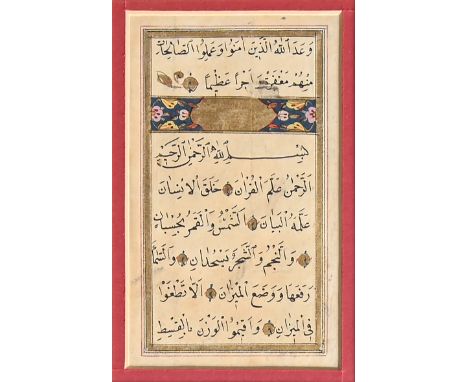 وَعَدَ اللهُ الَّذِينَ آمَنُوا وَعَمِلُوا الصَّالِحَاتِ
مِنْهُمْ مَغْفِرَةً وَأَجْرًا عَظِيمًا
بِسْمِ اللهِ الرَّحْمٰنِ الرَّحِيمِ
الرَّحْمٰنُ عَلَّمَ الْقُرْآنَ خَلَقَ الْاِنْسَانَ
عَلَّمَهُ الْبَيَانَ الشَّمْسُ وَالْقَمَرُ بِحُسْبَانٍ
وَالنَّجْمُ وَالشَّجَرُ يَسْجُدَانِ وَالسَّمَآءَ
رَفَعَهَا وَوَضَعَ الْمِيزَانَ اَلَّا تَطْغَوْا
فِي الْمِيزَانِ وَاَقِيمُوا الْوَزْنَ بِالْقِسْطِ